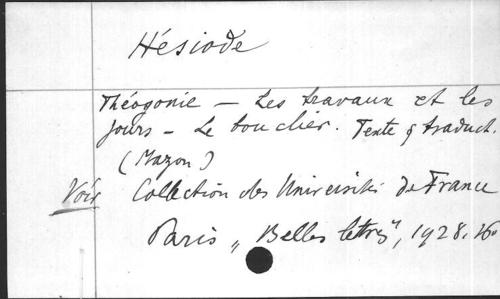 Hésiode
Théogonie – Les travaux et les
jours – Le bouclier. Texte & traduct.
(Mazon)
Voir Collection des Universités de France
Paris „Belles lettres", 1928. 16º